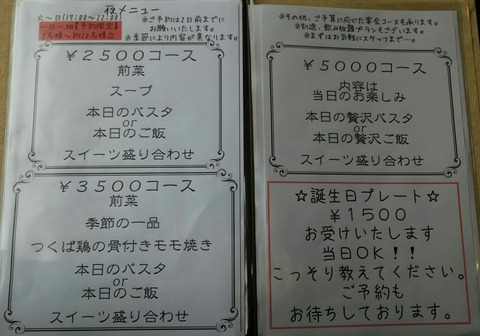 夜メニュー
火〜日(19:00〜22:00)
一日一組【予約限定】
7名様〜約20名様迄
※ご予約は2日前までに
お願いいたします。
※季節により内容が異なります。
￥2500コース
前菜
スープ
本日のパスタ
or
本日のご飯
スイーツ盛り合わせ
￥3500コース
前菜
季節の一品
つくば鶏の骨付きモモ焼き
本日のパスタ
or
本日のご飯
スイーツ盛り合わせ
※その他、ご予算に応じた宴会コースも承ります。
※別途、飲み放題プランもございます。
※まずはお気軽にスタッフまで…。
￥5000コース
内容は
当日のお楽しみ
本日の贅沢パスタ
or
本日の贅沢ご飯
スイーツ盛り合わせ
☆誕生日プレート☆
￥1500
お受けいたします
当日OK！！
こっそり教えてください。
ご予約も
お待ちしております。